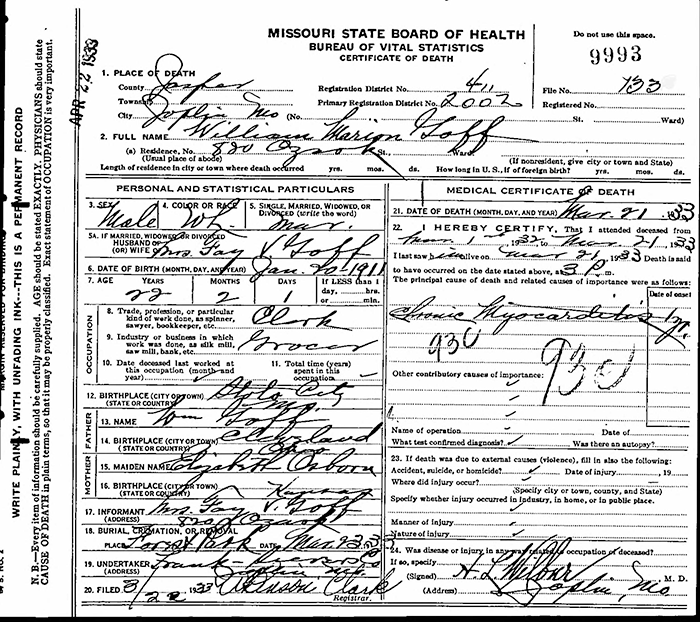 MISSOURI STATE BOARD OF HEALTH
BUREAU OF VITAL STATISTICS
CERTIFICATE OF DEATH
Do not use this space.
9993
APR 22 1933
WRITE PLAINLY, WITH UNFADING INK---THIS IS A PERMANENT RECORD
N. B.—Every item of information should be carefully supplied. AGE should be stated EXACTLY. PHYSICIANS should state
CAUSE OF DEATH in plain terms, so that it may be properly classified. Exact statement of OCCUPATION is very important.
1. PLACE OF DEATH
County Jasper Registration District No. 411 File No. 133
Township Primary Registration District No. 2002 Registered No.
City Joplin Mo (No. St. Ward)
2. FULL NAME William Marion Goff
(a) Residence, No. 820 Ozark St., Ward.
(Usual place of abode) (If nonresident, give city or town and State)
Length of residence in city or town where death occurred yrs. mos. ds. How long in U. S., if of foreign birth? yrs. mos. ds.
PERSONAL AND STATISTICAL PARTICULARS
3. SEX 4. COLOR OR RACE 5. SINGLE, MARRIED, WIDOWED, OR
DIVORCED (write the word)
Male Wh. Mar.
5A. IF MARRIED, WIDOWED, OR DIVORCED
HUSBAND OF
(OR) WIFE OF Mrs. Fay V Goff
6. DATE OF BIRTH (MONTH, DAY, AND YEAR) Jan. 20 - 1911
7. AGE YEARS MONTHS DAYS If LESS than 1
day, hrs.
or min.
22 2 1
OCCUPATION
8. Trade, profession, or particular
kind of work done, as spinner,
sawyer, bookkeeper, etc. Clark
9. Industry or business in which
work was done, as silk mill,
saw mill, bank, etc. Grocer
10. Date deceased last worked at
this occupation (month and
year)
11. Total time (years)
spent in this
occupation
12. BIRTHPLACE (CITY OR TOWN) City
(STATE OR COUNTRY) Mo.
FATHER
13. NAME Wm Goff
14. BIRTHPLACE (CITY OR TOWN) Cleveland
(STATE OR COUNTRY) Ohio
MOTHER
15. MAIDEN NAME Elizabeth Osborn
16. BIRTHPLACE (CITY OR TOWN)
(STATE OR COUNTRY) Kansas
17. INFORMANT Mrs. Fay V. Goff
(ADDRESS) 820 Ozark
18. BURIAL, CREMATION, OR REMOVAL
PLACE Forest Park DATE Mar. 23 33
19. UNDERTAKER Frank
(ADDRESS) Joplin Mo.
20. FILED 3/22 1933 Clark
Registrar.
MEDICAL CERTIFICATE OF DEATH
21. DATE OF DEATH (MONTH, DAY, AND YEAR) Mar. 21 1933
22. I HEREBY CERTIFY, That I attended deceased from
Mar 1 1933, to Mar 21 1933
I last saw him alive on Mar 21 1933 Death is said
to have occurred on the date stated above, at 3 P. m.
The principal cause of death and related causes of importance were as follows:
Date of onset
Chronic Myocarditis
930 930
Other contributory causes of importance:
Name of operation Date of
What test confirmed diagnosis? Was there an autopsy?
23. If death was due to external causes (violence), fill in also the following:
Accident, suicide, or homicide? Date of injury , 19
Where did injury occur?
(Specify city or town, county, and State)
Specify whether injury occurred in industry, in home, or in public place.
Manner of injury
Nature of injury
24. Was disease or injury, in any way related to occupation of deceased?
If so, specify
(Signed) H. L. Wilbur, M. D.
(Address) Joplin, Mo.